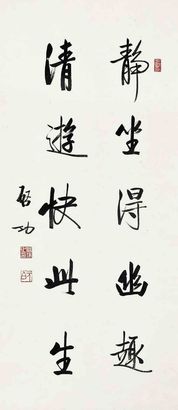 静坐得幽趣
清遊快此生
啟功